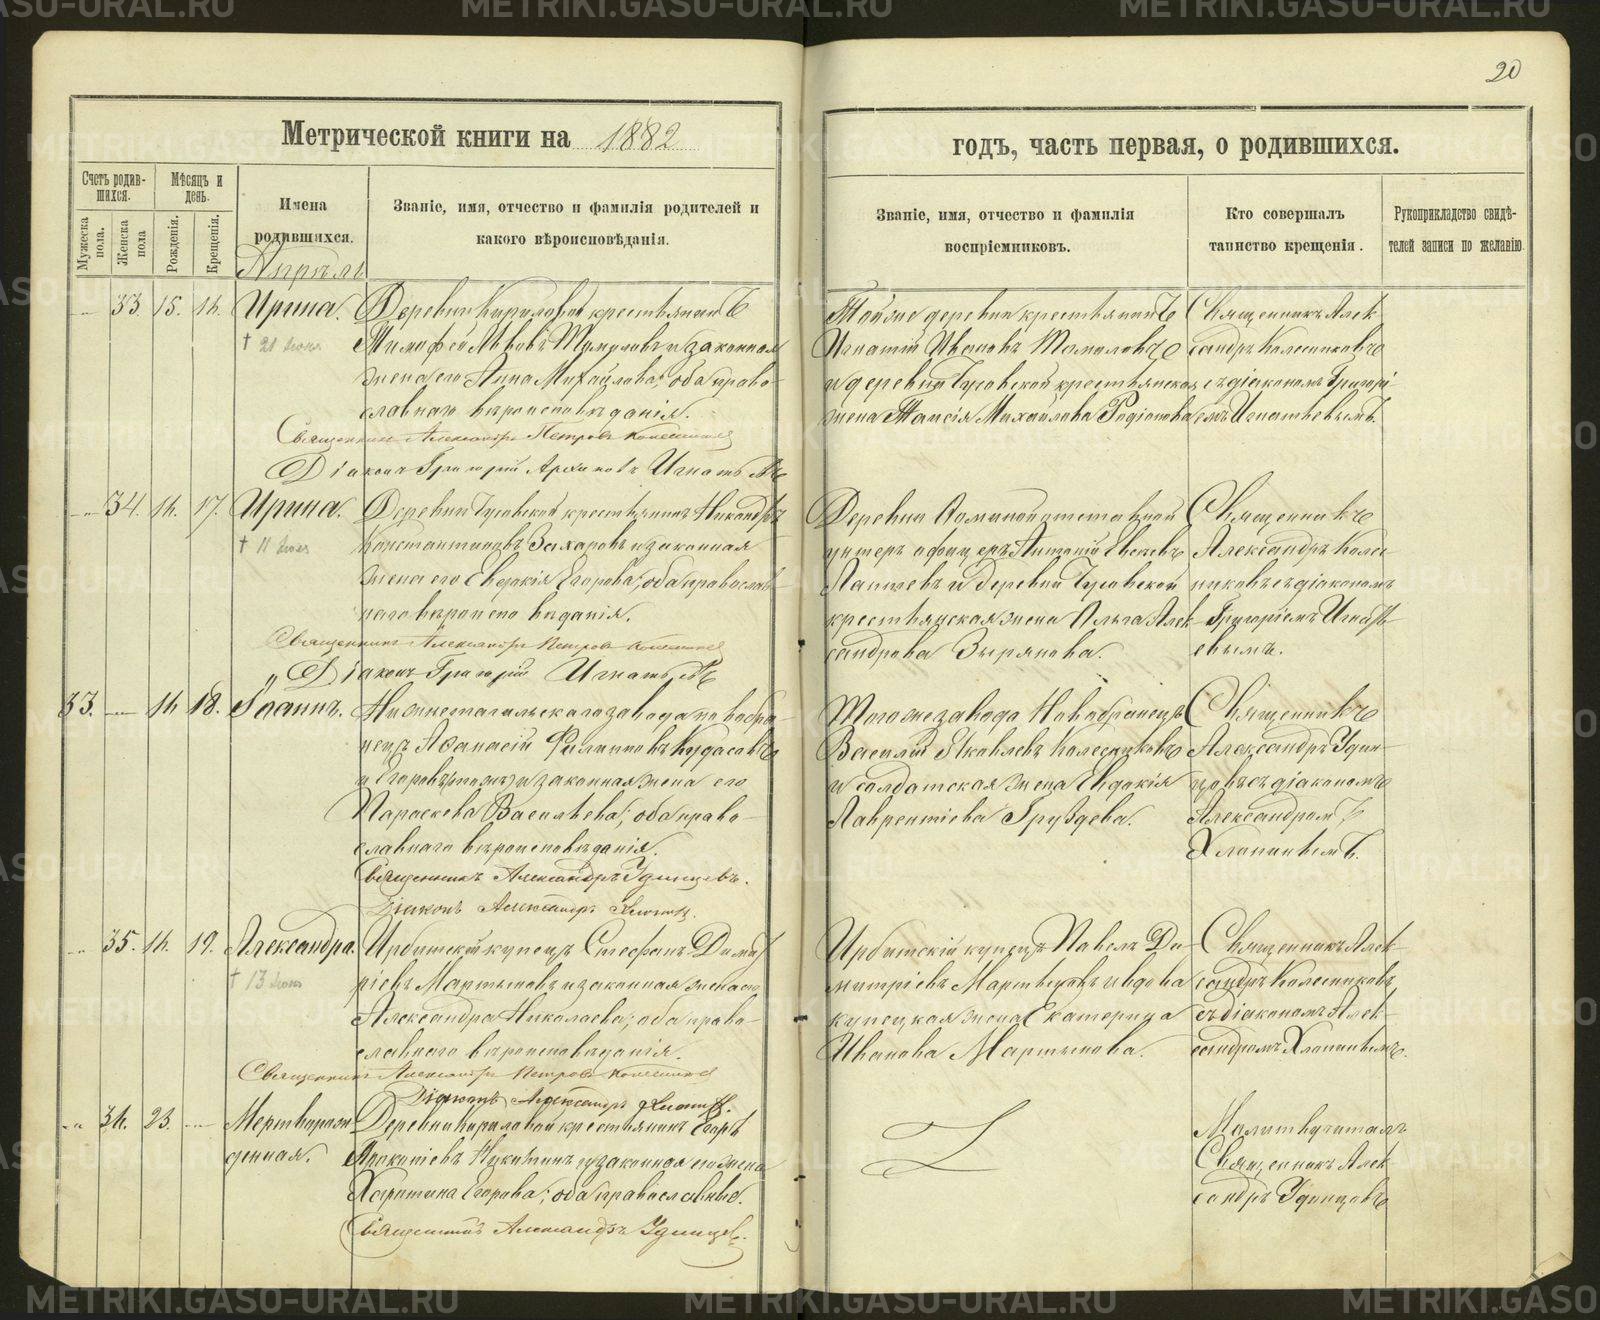 20
Метрической книги на 1882
годъ, часть первая, о родившихся.
Счетъ родив-
шихся.
Мѣсяцъ и
день.
Имена
родившихся.
Званіе, имя, отчество и фамилія родителей и
какого вѣроисповѣданія.
Мужеска
пола.
Женска
пола
Рожденія.
Крещенія.
Званіе, имя, отчество и фамилія
воспріемниковъ.
Кто совершалъ
таинство крещенія.
Рукоприкладство свидѣ-
телей записи по желанію.
Апрѣль
33. 15. 16. Ирина.
Деревни Кириловой крестьянинъ
Тимофей Львовъ и законная
жена его Анна Михайлова; оба право-
славнаго вѣроисповѣданія.
Священникъ Александръ Петровъ Колесников
Діаконъ Григорій Игнатьевъ
Тойже деревни крестьянинъ
Игнатій Ивановъ
и деревни Чусовской крестьянская
жена Таисія Михайлова Родіонова
Священникъ Алек-
сандръ Колесниковъ
съ діакономъ Григорі-
емъ Игнатьевымъ.
34. 16. 17. Ирина.
Деревни Чусовской крестьянинъ Никандръ
Константиновъ Захаровъ и законная
жена его Евдокія Егорова; оба православ-
наго вѣроисповѣданія.
Священникъ Александръ Петровъ Колесников
Діаконъ Григорій Игнатьевъ
Деревни отставной
унтеръ офицеръ Антоній
Лаптевъ и деревни Чусовской
крестьянская жена Ольга Алек-
сандрова Зырянова.
Священникъ
Александръ Колес-
никовъ съ діакономъ
Григоріемъ Игнать-
евымъ.
33. 16 18. Іоаннъ.
Нижнетагильскаго завода новобра-
нецъ Афанасій Филиповъ Кудасовъ
и законная жена его
Параскева Васильева; оба право-
славнаго вѣроисповѣданія.
Священникъ Александръ Удинцевъ.
Діаконъ Александръ
Тогоже завода Новобранецъ
Василій Яковлевъ Колесниковъ
и солдатская жена Евдокія
Лаврентіева Груздева.
Священникъ
Александръ Удин-
цовъ съ діакономъ
Александромъ
Хлопинымъ.
35. 16. 19. Александра.
† 13
Ирбитскій купецъ Стефанъ Димит-
ріевъ Мартыновъ и законная жена его
Александра Николаева; оба право-
славнаго вѣроисповѣданія.
Священникъ Александръ Петровъ Колесников
Діаконъ Александръ
Ирбитскій купецъ Павелъ Ди-
митріевъ Мартыновъ и вдова
купецкая жена Екатерина
Иванова Мартынова.
Священникъ Алек-
сандръ Колесниковъ
съ діакономъ Алек-
сандромъ Хлопинымъ.
36. 23. Мертворож-
денная.
Деревни Кириловой крестьянинъ Егоръ
Прокопіевъ Никитинъ и законная его жена
Харитина Егорова; оба православные.
Священникъ Александръ Удинцев.
Молитву читалъ
Священникъ Алек-
сандръ Удинцовъ
METRIKI.GASO-URAL.RU